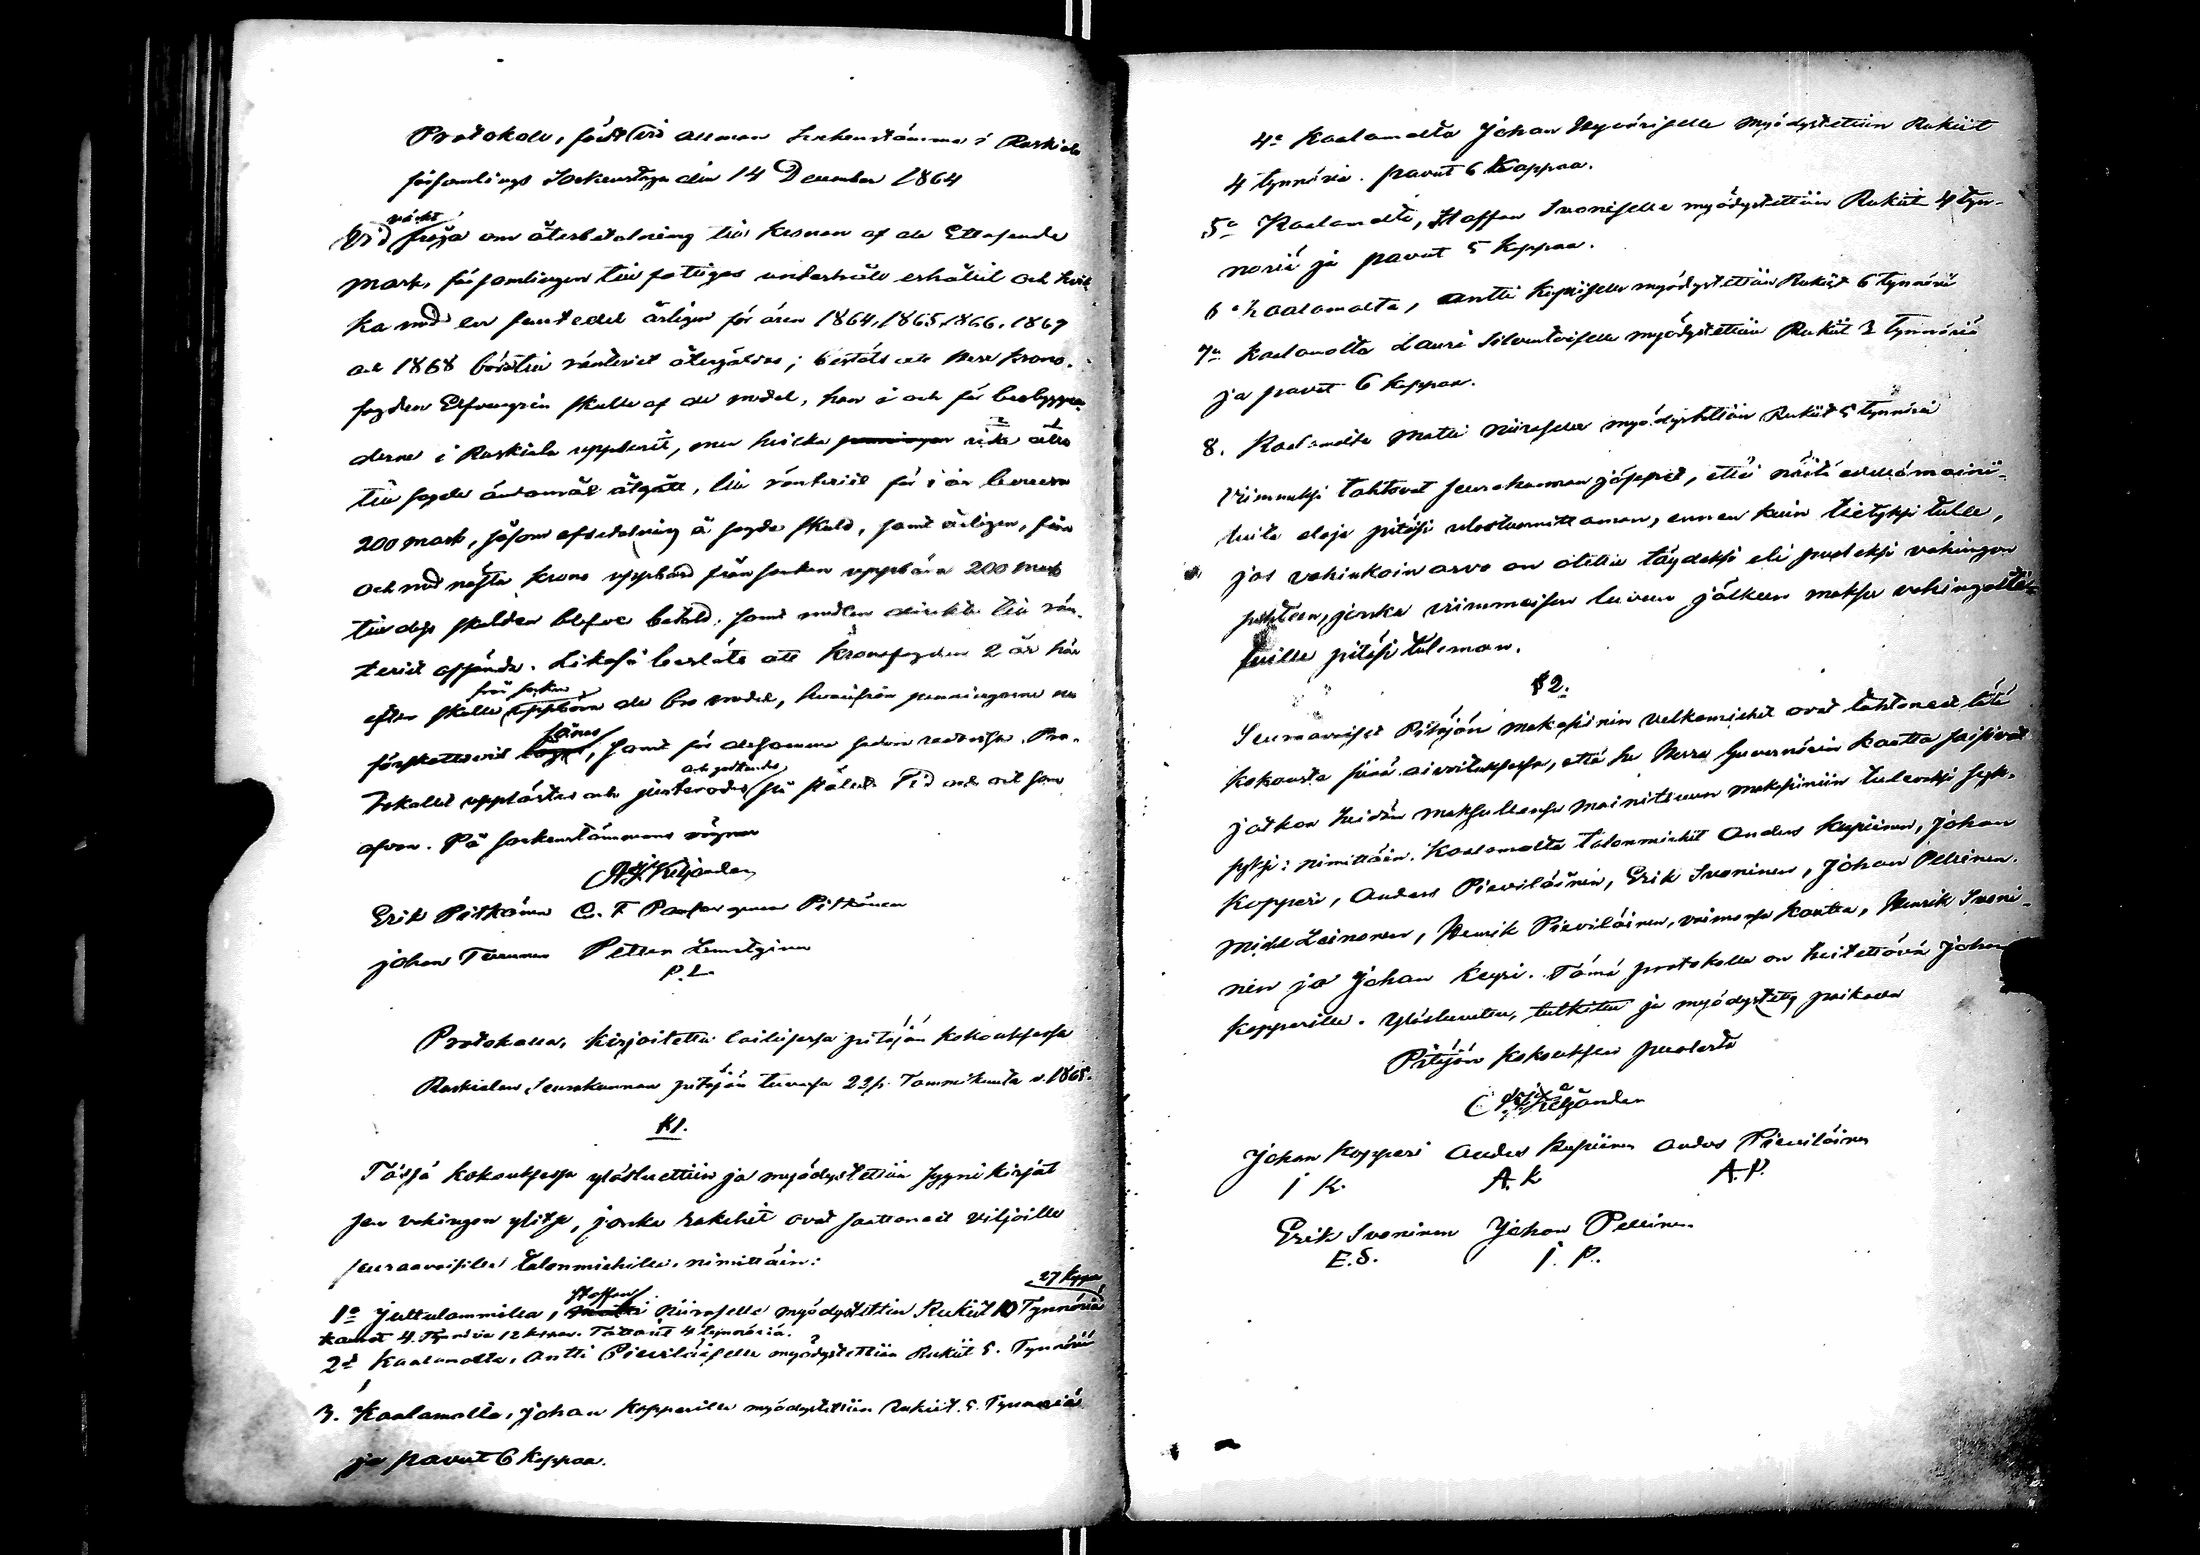 Protokoll, fördt vid allmän Sockenstämma i Ruskiala
församlings Sockenstuga den 14 December 1864
väckt
Vid fråga om återbetalning till kronan af de Ettusende
mark, församlingen till fattigas underhåll erhållit och hvil-
ka med en femtedel årligen för åren 1864, 1865, 1866, 1867
och 1868 bör till ränteriet återgäldas; beslöts att Herr Krono-
fogden Elfvengren skulle af de medel, han i och för
derne i Ruskiala uppburit, men hvilka penningar icke
till sagde ändamål åtgått, till ränteriet för i år leverera
200 mark, såsom afbetalning å sagde skuld, samt årligen, före
och med nästa krono uppbörd från socknen uppbära 200 mark
till dess skulden blefve betald, samt medlen direkte till rän-
teriet afsända. Likaså beslöts att Kronofogden 2 år här
från socknen
efter skulle uppbära de bro medel, hvarifrån penningarne nu
förskottsvis tagas, samt för desamma sedan redovisa. Pro-
och godkändes
tokollet upplästes och justerades på stället Tid och ort som
ofvan. På sockenstämmans vägnar
Kiljander
Erik Pitkänen C. F. Pitkänen
Johan Terunen Petter Lemetyinen
P. L
Protokolla, kirjoitettu laillisessa pitäjän kokouksessa
Ruskialan Seurakunnan pitäjän tuvassa 22 p. Tammikuuta v. 1865.
§ 1.
Tässä kokouksessa ylösluettiin ja myödystettiin syynikirjat
sen vahingon ylitse, jonka rakehet ovat saattaneet viljoille
seuraavaisille talonmiehille, nimittäin:
27 kappa
Staffan
1o Juttulammilla, Niiraselle myödystettiin Rukiit 10 Tynnöriä
kaurat 4. Tynnöria 12 kappa. Tattarit 4 tynnöriä.
2o Kaalamolta, Antti Pieviläiselle myödystettiin Rukiit 5. Tynnöriä
3. Kaalamolta, Johan Kopperille myödystettiin Rukiit 5. Tynnöriä
ja pavut 6 kappaa.
4o Kaalamolta Johan myödystettiin Rukiit
4 tynnöriä. pavut 6 Kappaa.
5o Kaalamolta, Staffan Ivoniselle myödystettiin Rukiit 4 tyn-
noriä ja pavut 5 kappaa.
6o Kaalamolta, Antti myödystettiin Rukiit 6 tynnöriä
7o Kaalamolta Lauri Silventoiselle myödystettiin Rukiit 3 tynnöriä
ja pavut 6 kappaa.
8. Kaalamolta Matti Niiraselle myödystettiin Rukiit 5 tynnöriä
Viimmeksi tahtovat seurakunnan jäsenet, että näitä edellämainit-
tuita eloja pitäisi ulostuomittaman, ennen kuin tietyksi tulle,
jos vahinkoin arvo on otettu täydeksi eli puoleksi vahingon
suhteen, jonka viimmeisen luvun jälkeen maksu vahingolli-
suille pitäisi tuleman.
§ 2.
Seuraavaiset Pitäjän makasinin velkamiehet ovat tahtoneet tätä
kokousta siinä aivoituksessa, että he Herra Guvernörin kautta saisivat
jatkon heidän maksullensa mainittuun makasiiniin tulevaksi syk-
syksi: nimittäin. Kaalamolta talonmiehet Anders Kupiinen, Johan
Kopperi, Anders Pieviläinen, Erik Ivoninen, Johan Pellinen.
Mikel Leinonen, Henrik Pieviläinen, vaimonsa kautta, Henrik Ivoni-
nen ja Johan Keyri. Tämä protokolla on heitettävä Johan
Kopperille. Ylösluettu, tutkittu ja myödystetty paikalla
Pitäjän kokouksen puolesta
Kiljander
Johan Kopperi Anders Kupiinen Anders Pieviläinen
I K. A. K A. P.
Erik Ivoninen Johan Pellinen
E. S. I. P.